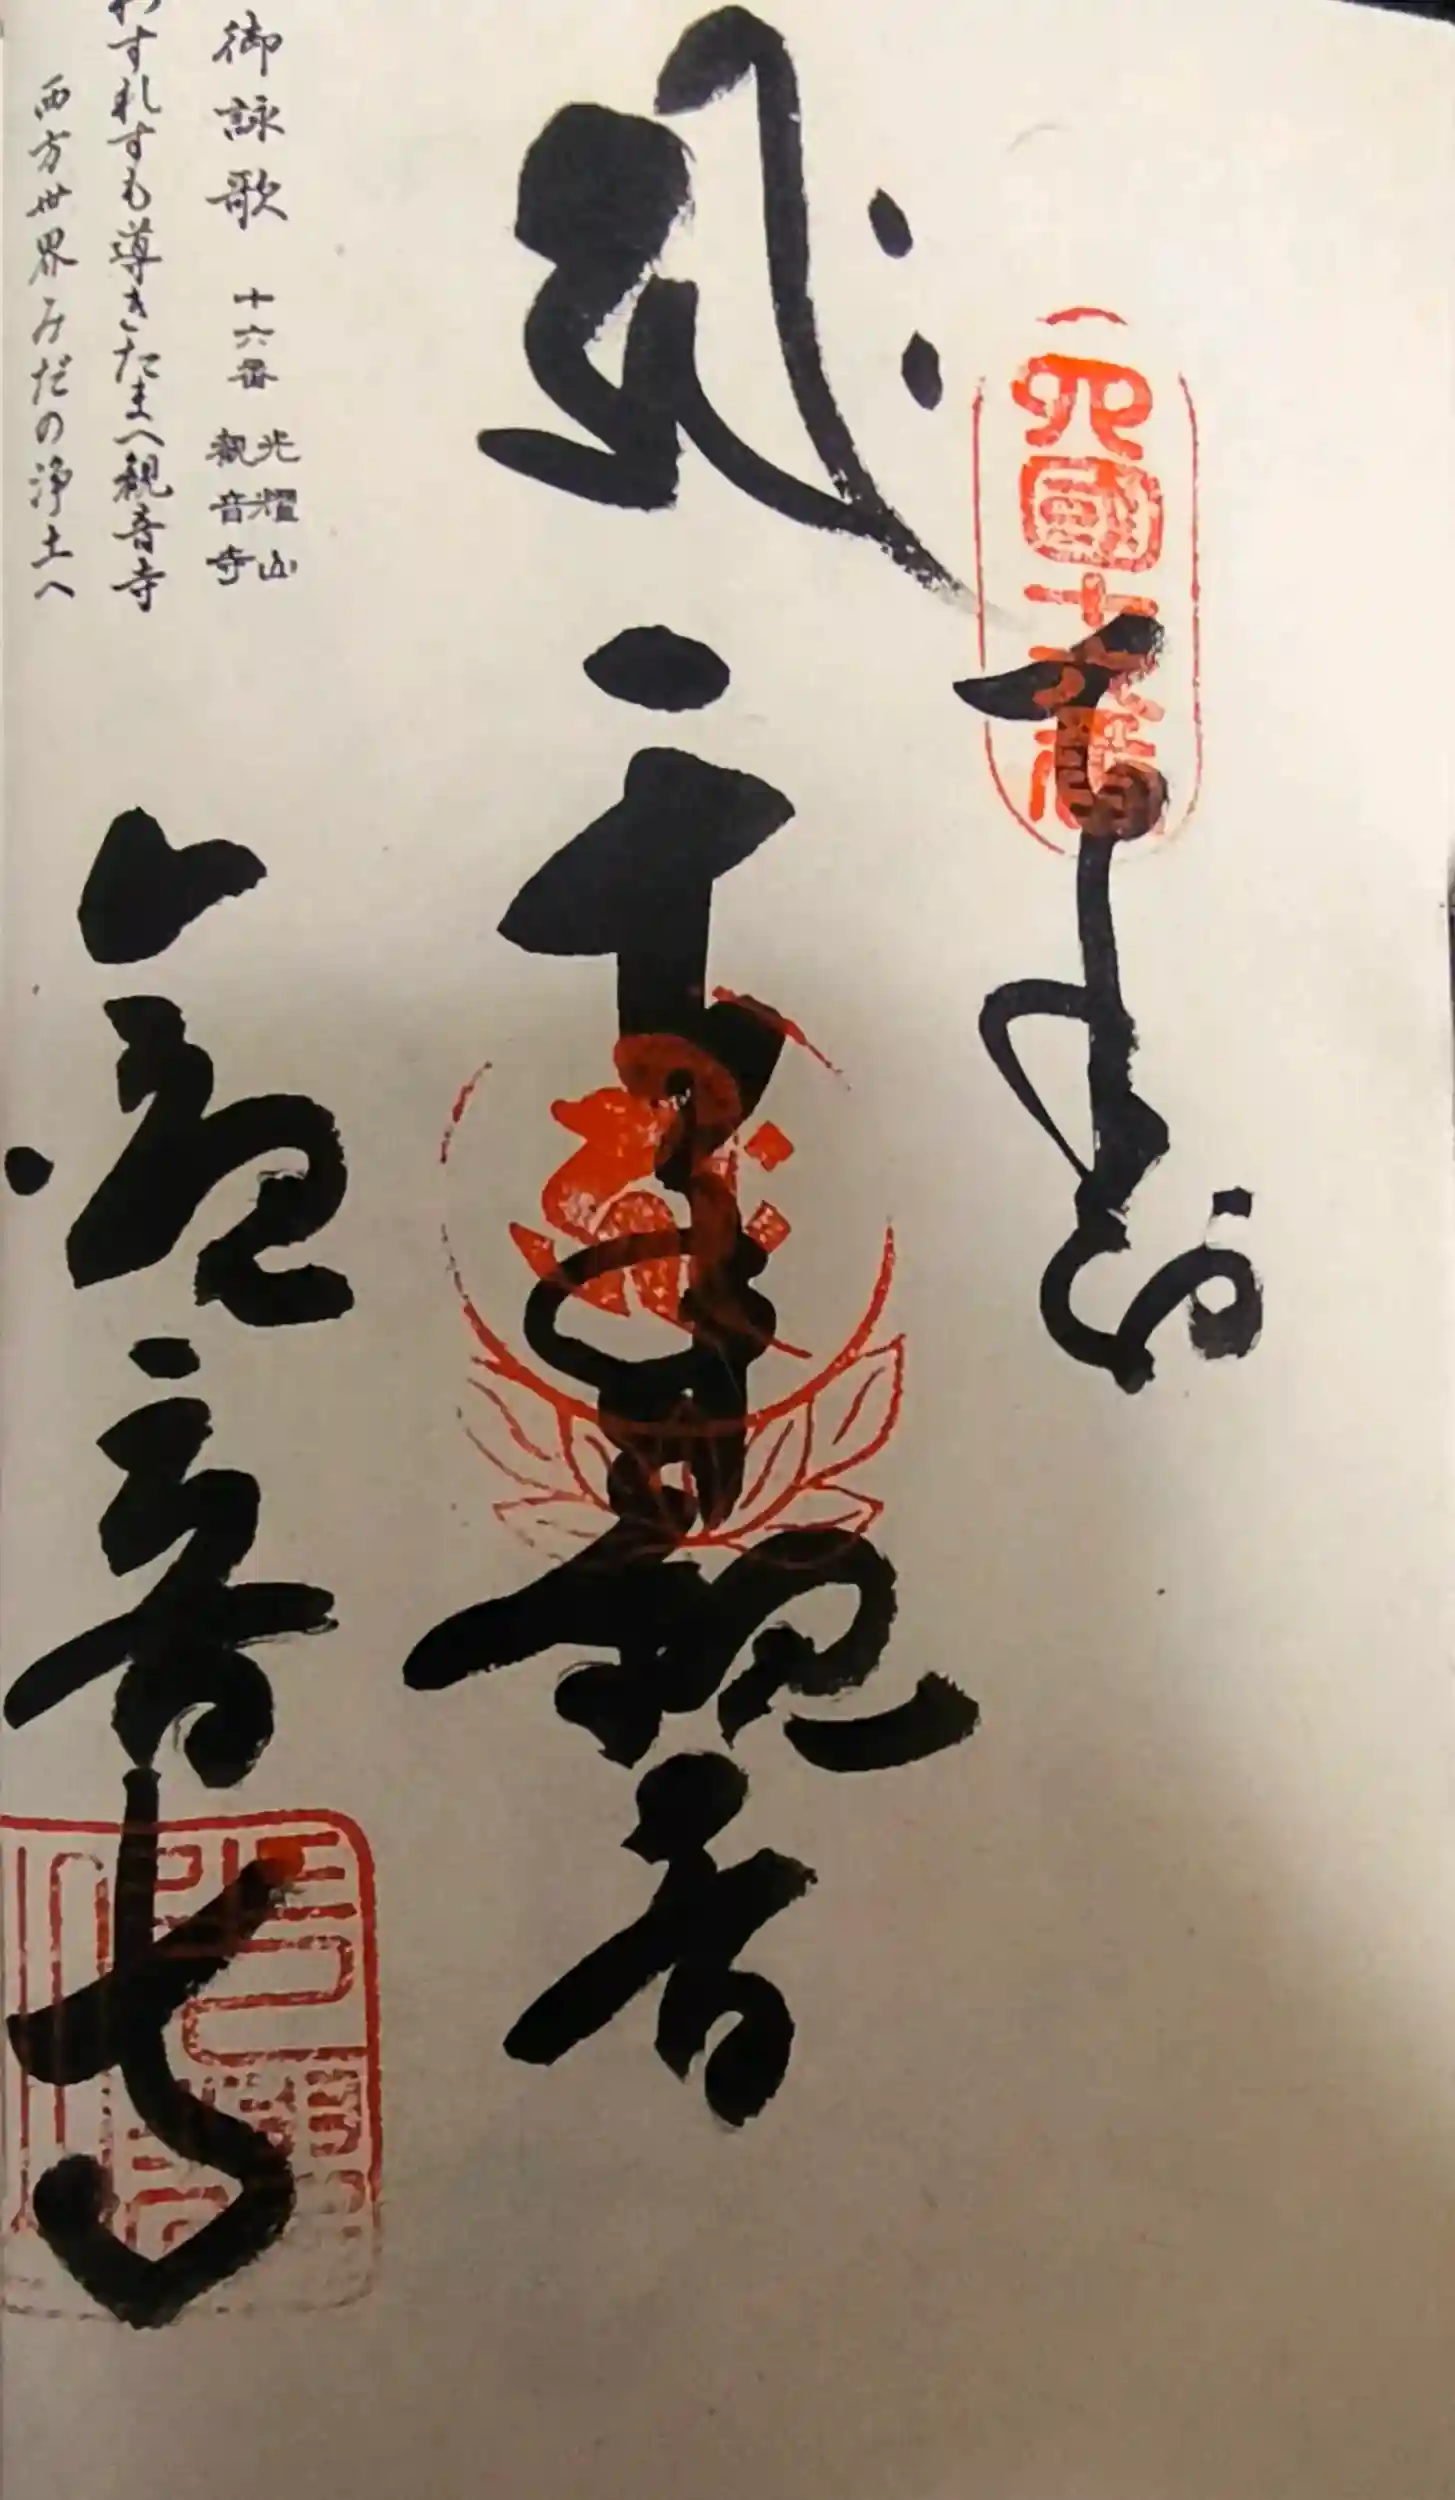 四國十六番
奉納
千手観音
御詠歌 十六番 光耀山
観音寺
わすれすも導きたまへ観音寺
西方世界みだの浄土へ
観音寺